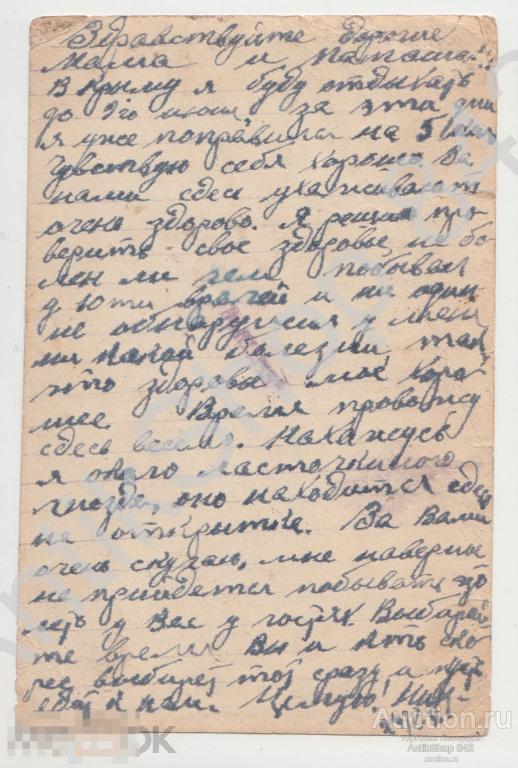 Здравствуйте Дорогие
Мама и Папаша!
В Крыму я буду отдыхать
до 9го июня за эти дни
я уже поправился на 5
чувствую себя хорошо За
нами сдесь ухаживают
очень здорово. Я решил про-
верить свое здоровье, не бо-
лен ли чем побывал
у 10ти врачей и ни один
не обнаружил у меня
ни какой болезни, так
что здоровье мое хоро-
шее. Время провожу
сдесь весело. Нахожусь
я около ласточкиного
гнезда, оно находится сдесь
на открытке. За Вами
очень скучаю, мне наверное
не придется побывать
у Вас у гостях. Выбирай-
те время Вы и
сразу и
к нам. Целую!
Auction.ru
АнтikShop 842
auction.ru